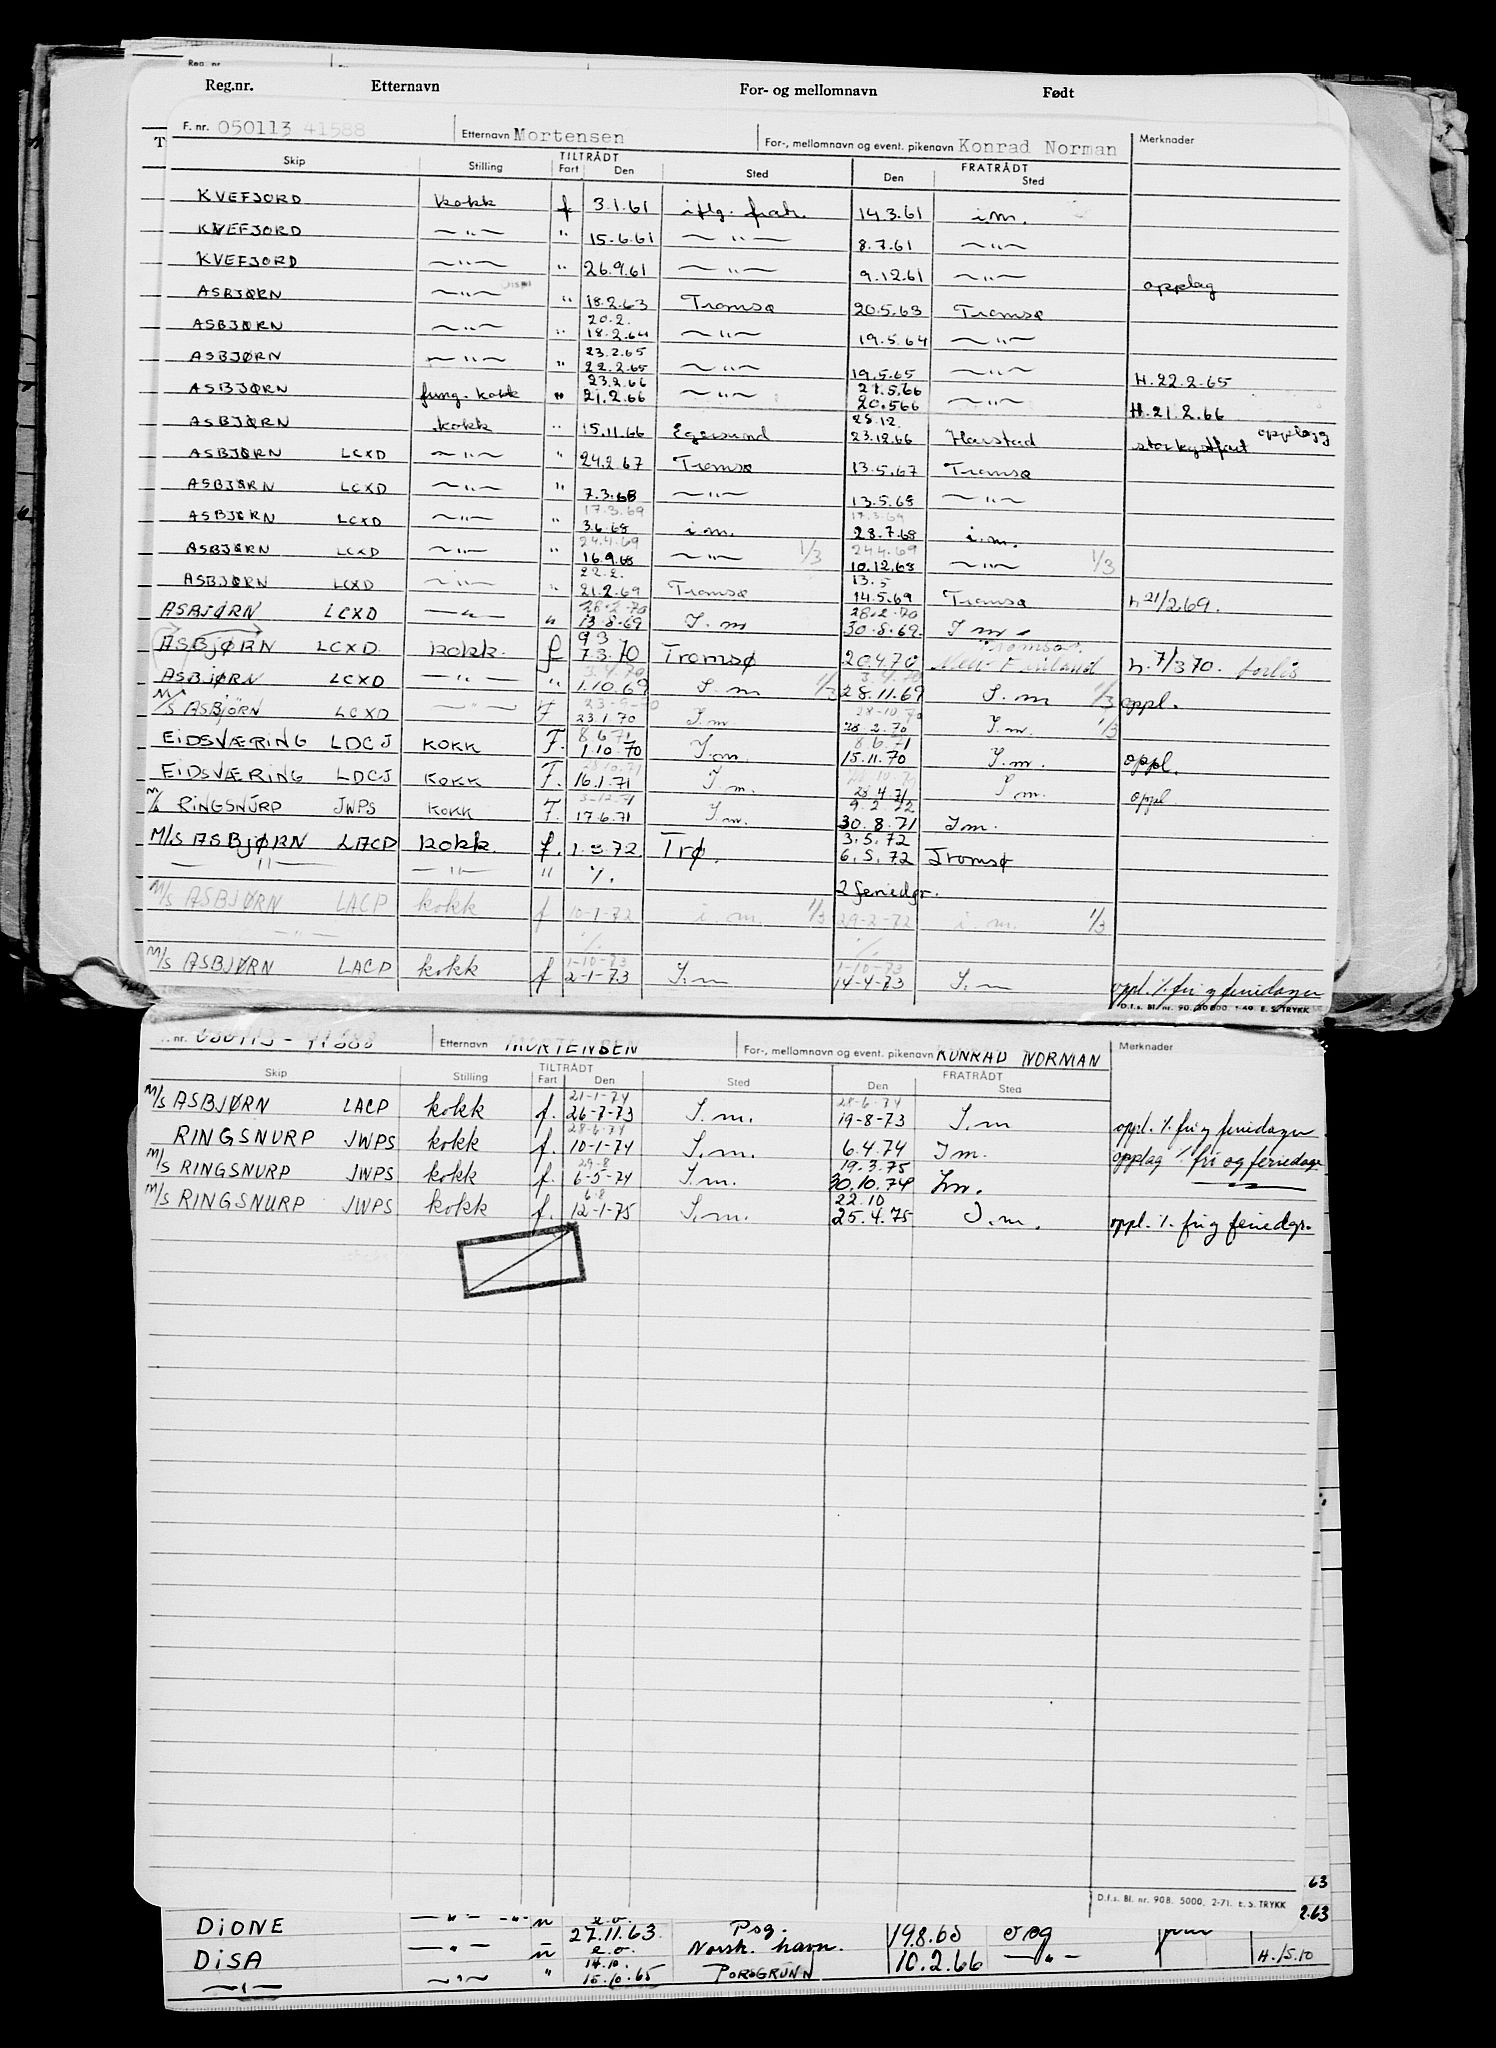 Reg.nr. Etternavn For- og mellomnavn Født
F. nr. 050113 41588 Etternavn Mortensen For-, mellomnavn og event. pikenavn Konrad Norman Merknader
TILTRÅDT FRATRÅDT
Skip Stilling Fart Den Sted Den Sted
KVEFJORD kokk f 3.1.61 iflg. frat. 14.3.61 i.m.
KVEFJORD — " — " 15.6.61 — " — 8.7.61 — " —
KVEFJORD — " — " 26.9.61 — " — 9.12.61 — " — opplag
ASBJØRN — " — " 18.2.63 Tromsø 20.5.63 Tromsø
20.2.
ASBJØRN — " — " 18.2.64 — " — 19.5.64 — " —
23.2.65
ASBJØRN — " — " 22.2.65 — " — 19.5.65 — " — H.22.2.65
23.2.66 21.5.66
ASBJØRN fung. kokk " 21.2.66 — " — 20.5.66 — " — H.21.2.66
28.12.
ASBJØRN kokk " 15.11.66 Egersund 23.12.66 Harstad storkystfart opplagg
ASBJØRN LCXD — " — " 24.2.67 Tromsø 13.5.67 Tromsø
ASBJØRN LCXD — " — " 7.3.68 — " — 13.5.68 — " —
17.3.69 17.3.69
ASBJØRN LCXD — " — " 3.6.68 i.m. 28.7.68 i.m.
24.4.69 24.4.69
ASBJØRN LCXD — " — " 16.9.68 — " — 1/3 10.12.68 — " — 1/3
22.2. 13.5
ASBJØRN LCXD — " — " 21.2.69 Tromsø 14.5.69 Tromsø h 21/2 69.
28.2.70 28.2.70
ASBJØRN LCXD — " — " 13.8.69 I.m 30.8.69. I m.
9 3 Tromsø
ASBJØRN LCXD kokk. f 7.3.70 Tromsø 20.4.70 h. 7/3 70. forlis
3.4.70 3.4.70
ASBJØRN LCXD " 1.10.69 I.m 1/3 28.11.69 I.m 1/3 oppl.
23-9-70 28-10.70
M/S ASBJÖRN LCXD — " — F 23.1.70 I.m. 28.2.70 I.m. 1/3
8.6.71 8.6.71
EIDSVÆRING LDCJ KOKK F. 1.10.70 I.m. 15.11.70 I.m. oppl.
28.10.71
EIDSVÆRING LDCJ KOKK F. 16.1.71 I m. 28.4.71 I m. oppl
9.2.72
M/S RINGSNURP JWPS KOKK F. 17.6.71 I.m. 30.8.71 Im.
3.5.72
M/S ASBJØRN LACD kokk. f. 72 Trø. 6.5.72 Tromsø
— " — — " — " %. 2 feriedgr.
M/S ASBJØRN LACP kokk f 10-1-72 i.m. 1/3 29-2-72 i.m. 1/3
— " — %. %.
1-10-73 1-10-73
M/S ASBJØRN LACP kokk f 2-1-73 I.m 14-4-73 I.m oppl. %. fri g feriedager
D.f.s. Bl. nr. 90. 1-69. E. S. TRYKK
nr. 050113 - 41588 Etternavn MORTENSEN For-, mellomnavn og event. pikenavn KONRAD NORMAN Merknader
TILTRÅDT FRATRÅDT
Skip Stilling Fart Den Sted Den Sted
21-1-74 28-6-74
M/S ASBJØRN LACP kokk f. 26-7-73 I.m. 19-8-73 I.m oppl. %. fri g feriedager
28-6-74
RINGSNURP JWPS kokk f. 10-1-74 I.m. 6.4.74 I m. opplag %. fri og feriedage
29-8 19.3.75
M/S RINGSNURP JWPS kokk f. 6-5-74 I.m. 30.10.74 Im.
6.8 22.10
M/S RINGSNURP JWPS kokk f. 12-1-75 I.m. 25.4.75 I.m. oppl. %. fri g feriedgr.
63
D.f.s. Bl. nr. 908. 5000. 2-71. E. S. TRYKK
2.63
DiONE — " — — " — u e.o.
27.11.63. Psg. 19.8.65
DiSA — " — u e.o. Norsk. havn. 10.2.66 — " —
14.10. H.15.10
— " — — " — " 15.10.65 PORSGRUNN